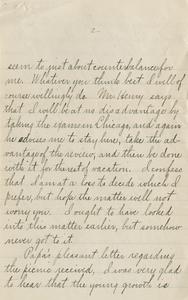 2.
seem to just about counterbalance for
me. Whatever you think best I will of
course willingly do. Mr. Henry says
that I will be at no disadvantage by
taking the exams in Chicago, and again
he advises me to stay here, take the ad-
vantage of the review, and then be done
with it for the rest of vacation. I confess
that I am at a loss to decide which I
prefer, but hope the matter will not
worry you. I ought to have looked
into this matter earlier, but somehow
never got to it.
Papa's pleasant letter regarding
the picnic received, I was very glad
to hear that the young growth is